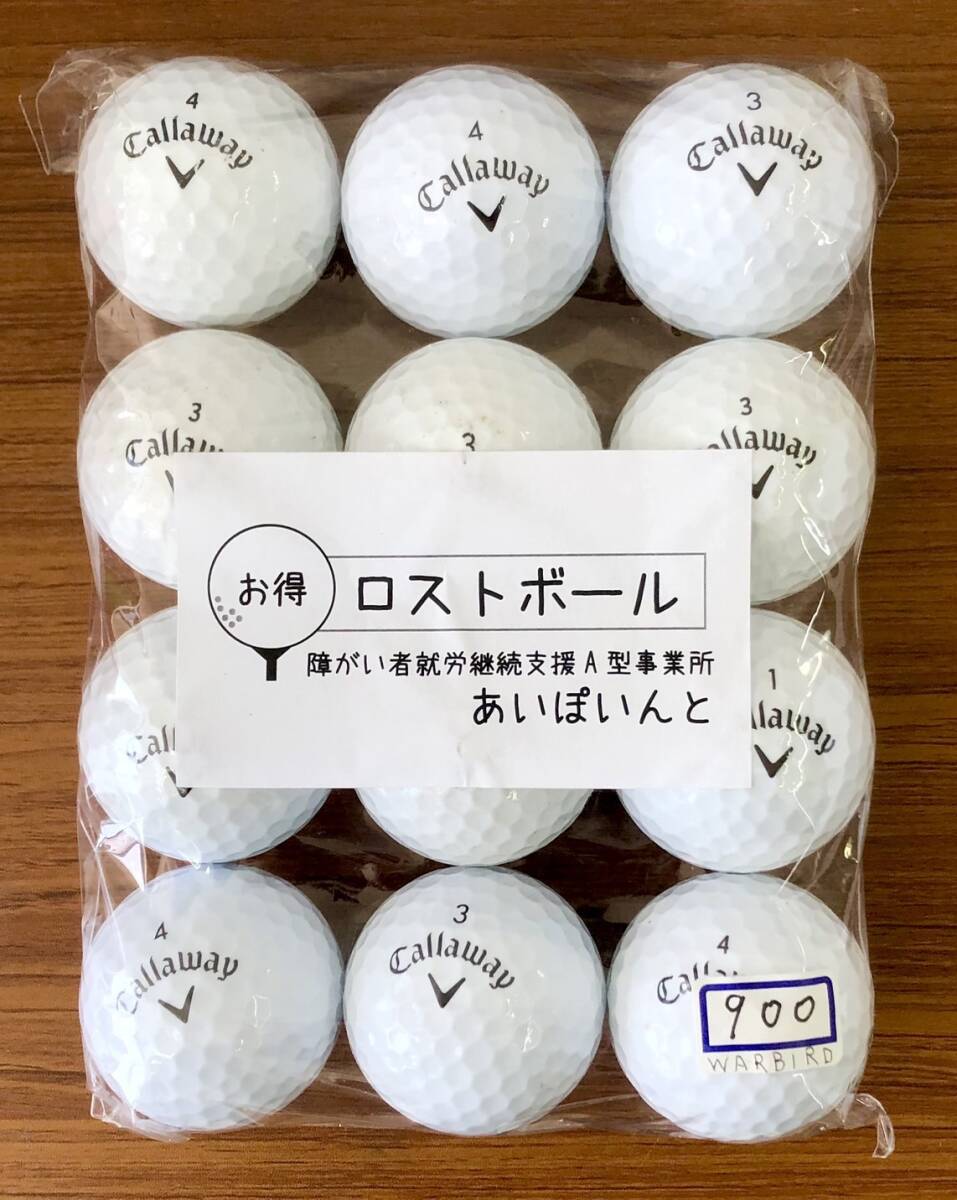 4
Callaway
4
Callaway
3
Callaway
3
Calla
3
3
allaway
お得
ロストボール
障がい者就労継続支援A型事業所
あいぽいんと
Call
1
llaway
4
Callaway
3
Callaway
4
Calla
900
WARBIRD